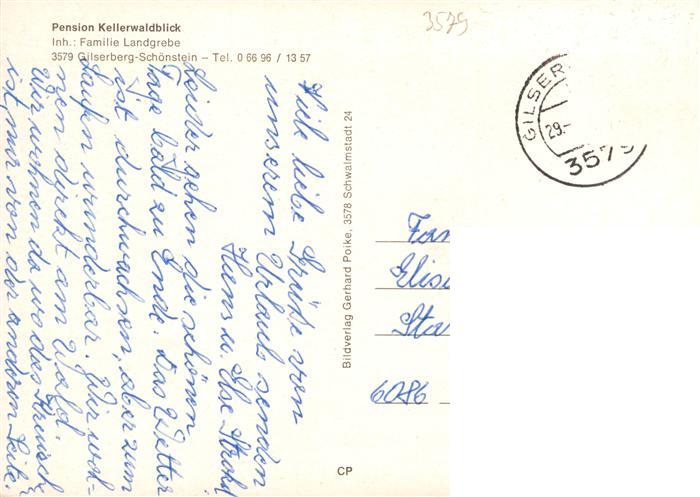 Pension Kellerwaldblick
Inh.: Familie Landgrebe
3579 Gilserberg-Schönstein – Tel. 0 66 96 / 13 57
3579
GILSER
29.-
3579
Viele liebe Grüße von
unserem Urlaub senden
Hans u. Else
Leider gehen die schönen
Tage bald zu Ende. Das Wetter
ist durchwachsen, aber zum
Laufen wunderbar. Wir woh-
nen direkt am Wald.
Wir wohnen da wo das
ist, nur von der anderen Seite.
Bildverlag Gerhard Poike, 3578 Schwalmstadt 24
Fam
Elis
Sta
6086
CP